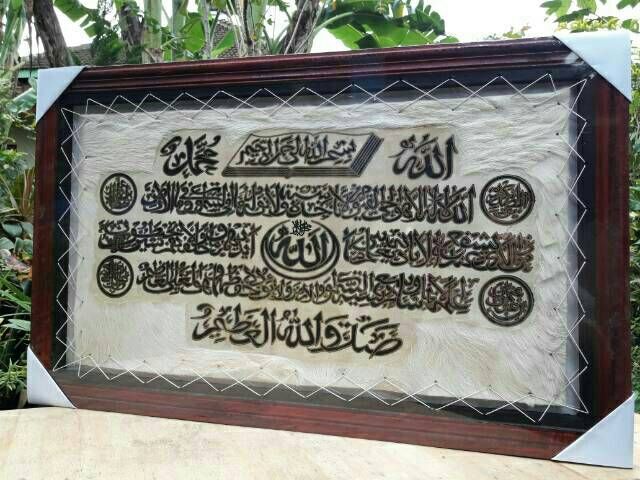 الله بسم الله الرحمن الرحيم محمد
الله لا إله إلا هو الحي القيوم لا تأخذه سنة ولا نوم له ما في السماوات وما في الأرض
من ذا الذي يشفع عنده إلا بإذنه يعلم ما بين أيديهم وما خلفهم ولا يحيطون بشيء
الله
من علمه إلا بما شاء وسع كرسيه السماوات والأرض ولا يؤوده حفظهما وهو العلي العظيم
صدق الله العظيم